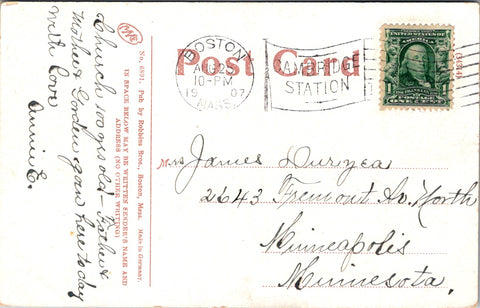 Church 100 yrs old - Father &
Mother Gordon gave here to day
With Love
Annie E.
No. 6891. Pub by Robbins Bros., Boston, Mass. Made in Germany.
IN SPACE BELOW MAY BE WRITTEN SENDER'S NAME AND
ADDRESS (NO OTHER WRITING)
Post Card
BOSTON
10-PM
1907
MASS.
CAMBRIDGE
STATION
UNITED STATES OF AMERICA
FRANKLIN
1 1
ONE CENT
Mrs James Duryea
2643 Fremont Av. North
Minneapolis
Minnesota.